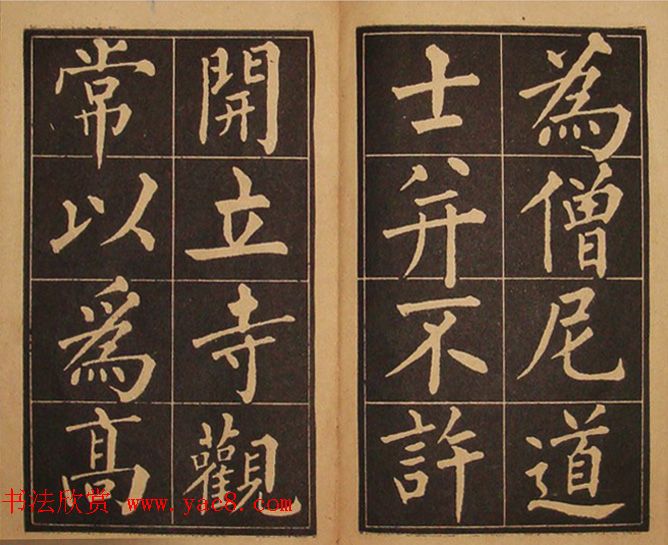 為僧尼道
士并不許
開立寺觀
常以爲高
书法欣赏 www.yac8.com